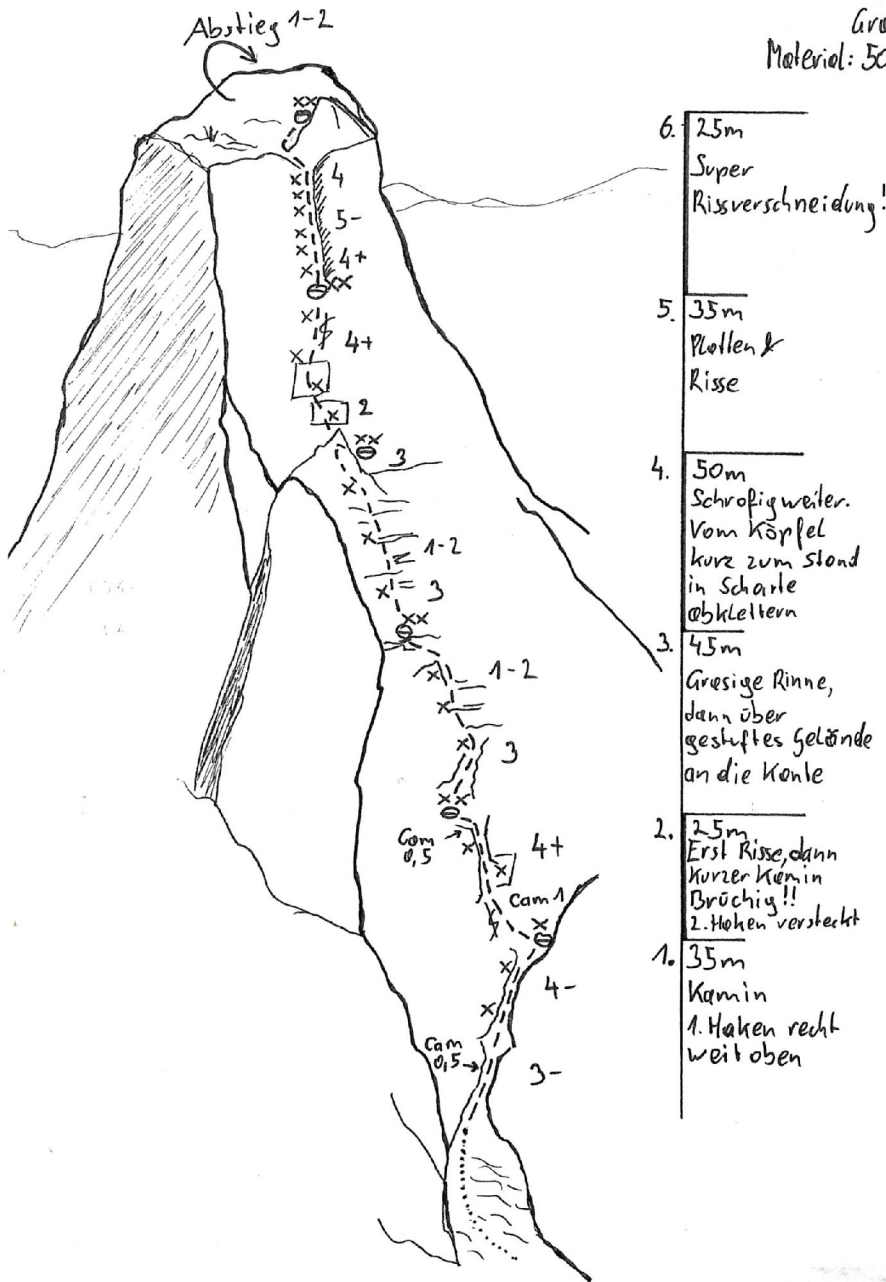 Abstieg 1-2
Material: 50
4
5-
4+
4+
2
3
1-2
3
1-2
3
Cam
0,5
4+
Cam 1
4-
Cam
0,5
3-
6. 25m
Super
Rissverschneidung!
5. 35m
Platten &
Risse
4. 50m
Schrofig weiter.
Vom Köpfel
kurz zum Stand
in Scharte
abklettern
3. 45m
Grasige Rinne,
dann über
gestuftes Gelände
an die Kante
2. 25m
Erst Risse, dann
kurzer Kamin
Brüchig!!
2. Haken versteckt
1. 35m
Kamin
1. Haken recht
weit oben